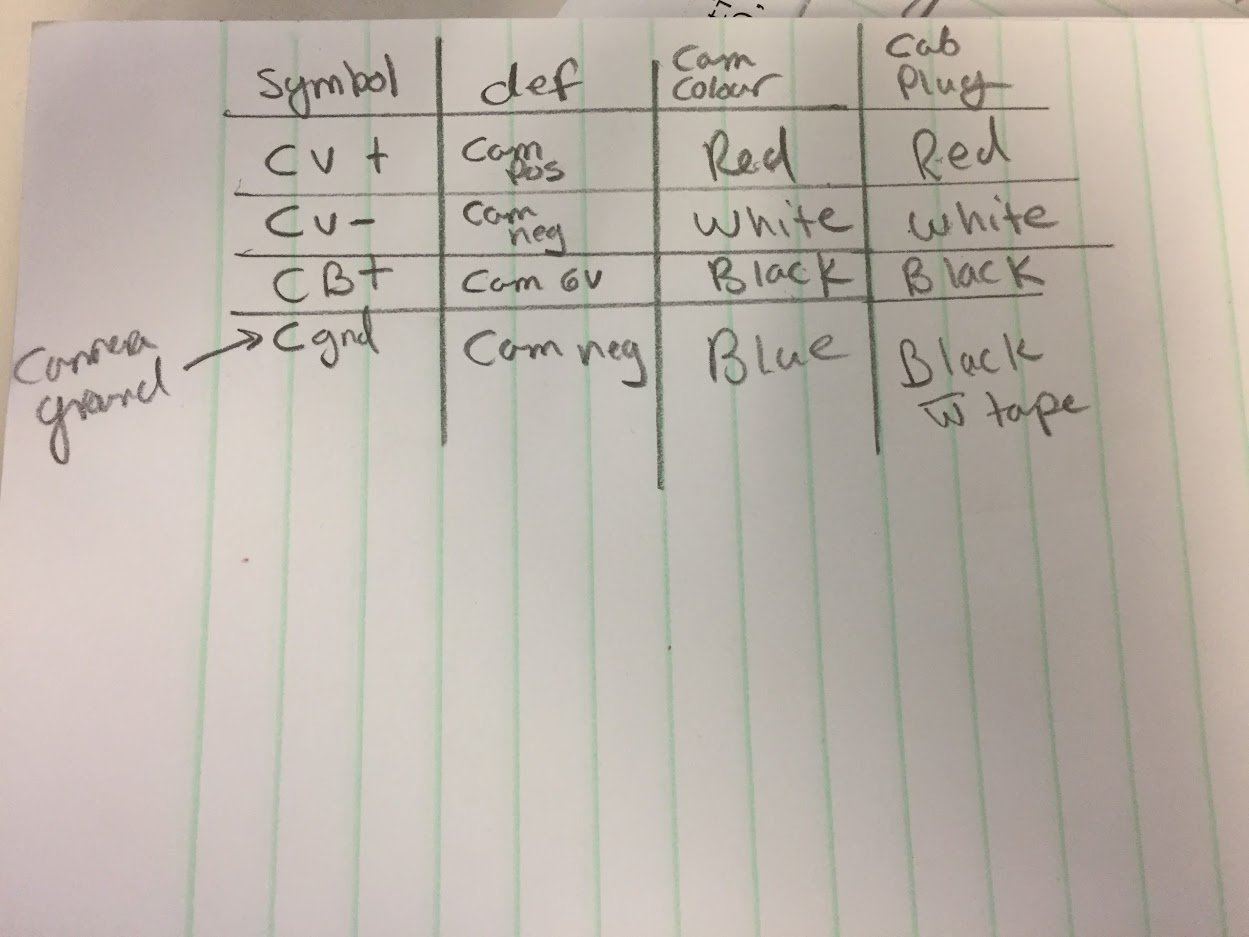 Symbol def Cam Colour Cab Plug
CV+ Cam pos Red Red
CV- Cam neg White White
CB+ Cam 6V Black Black
Cgnd Cam neg Blue Black w̅ tape
Camera
ground